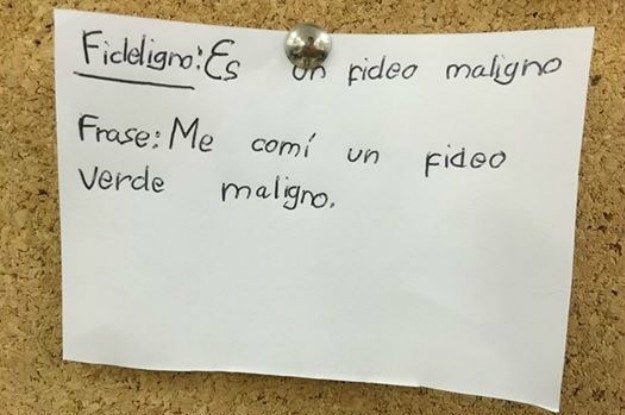 Fideligno: Es un fideo maligno
Frase: Me comí un fideo
verde maligno.